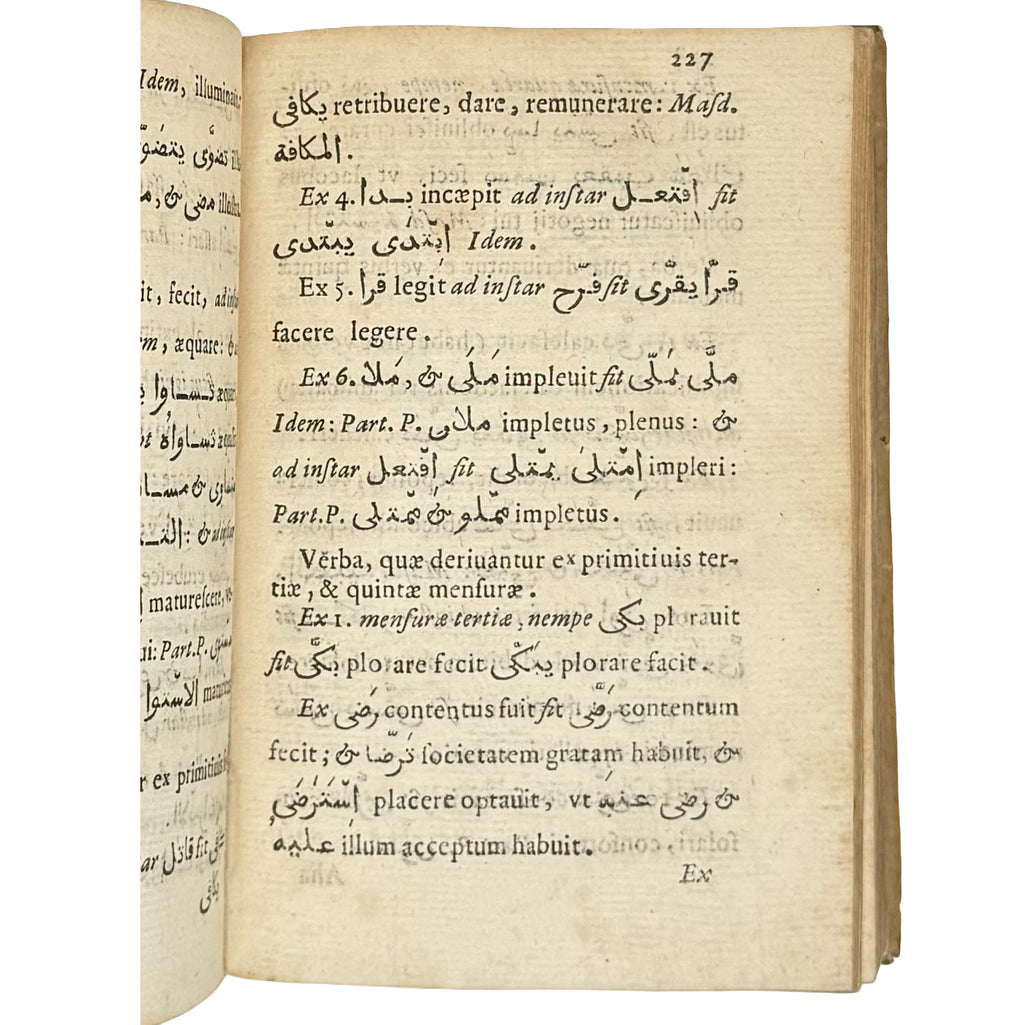 Idem, illuminat
تضوّى يتضوّ
مضى & illustra
it, fecit, ad inſt
rm, æquare: &
æqua
maturescere, v
ui: Part. P.
الاستوا matu
r ex primitiuis
ar قاتل fit
يكافي
227
يكافي retribuere, dare, remunerare: Maſd.
المكافة.
Ex 4. بدا incæpit ad inſtar افتعل fit
ابتدى يبتدى Idem.
Ex 5. قرا legit ad inſtar فرّح fit قرّا يقرّى
facere legere.
Ex 6. ملا, & مَلَى impleuit fit ملَّى يملّى
Idem: Part. P. ملاى impletus, plenus: &
ad inſtar افتعل fit امتلى يمتلى impleri:
Part. P. مملو & ممتلى impletus.
Verba, quæ deriuantur ex primitiuis ter-
tiæ, & quintæ menſuræ.
Ex 1. menſuræ tertiæ, nempe بكى plorauit
fit بكّى plorare fecit يبكّى plorare facit.
Ex رضى contentus fuit fit رضّى contentum
fecit; & ترضّا ſocietatem gratam habuit, &
استرضى placere optauit, vt رضى عنه &
عليه illum acceptum habuit.
Ex